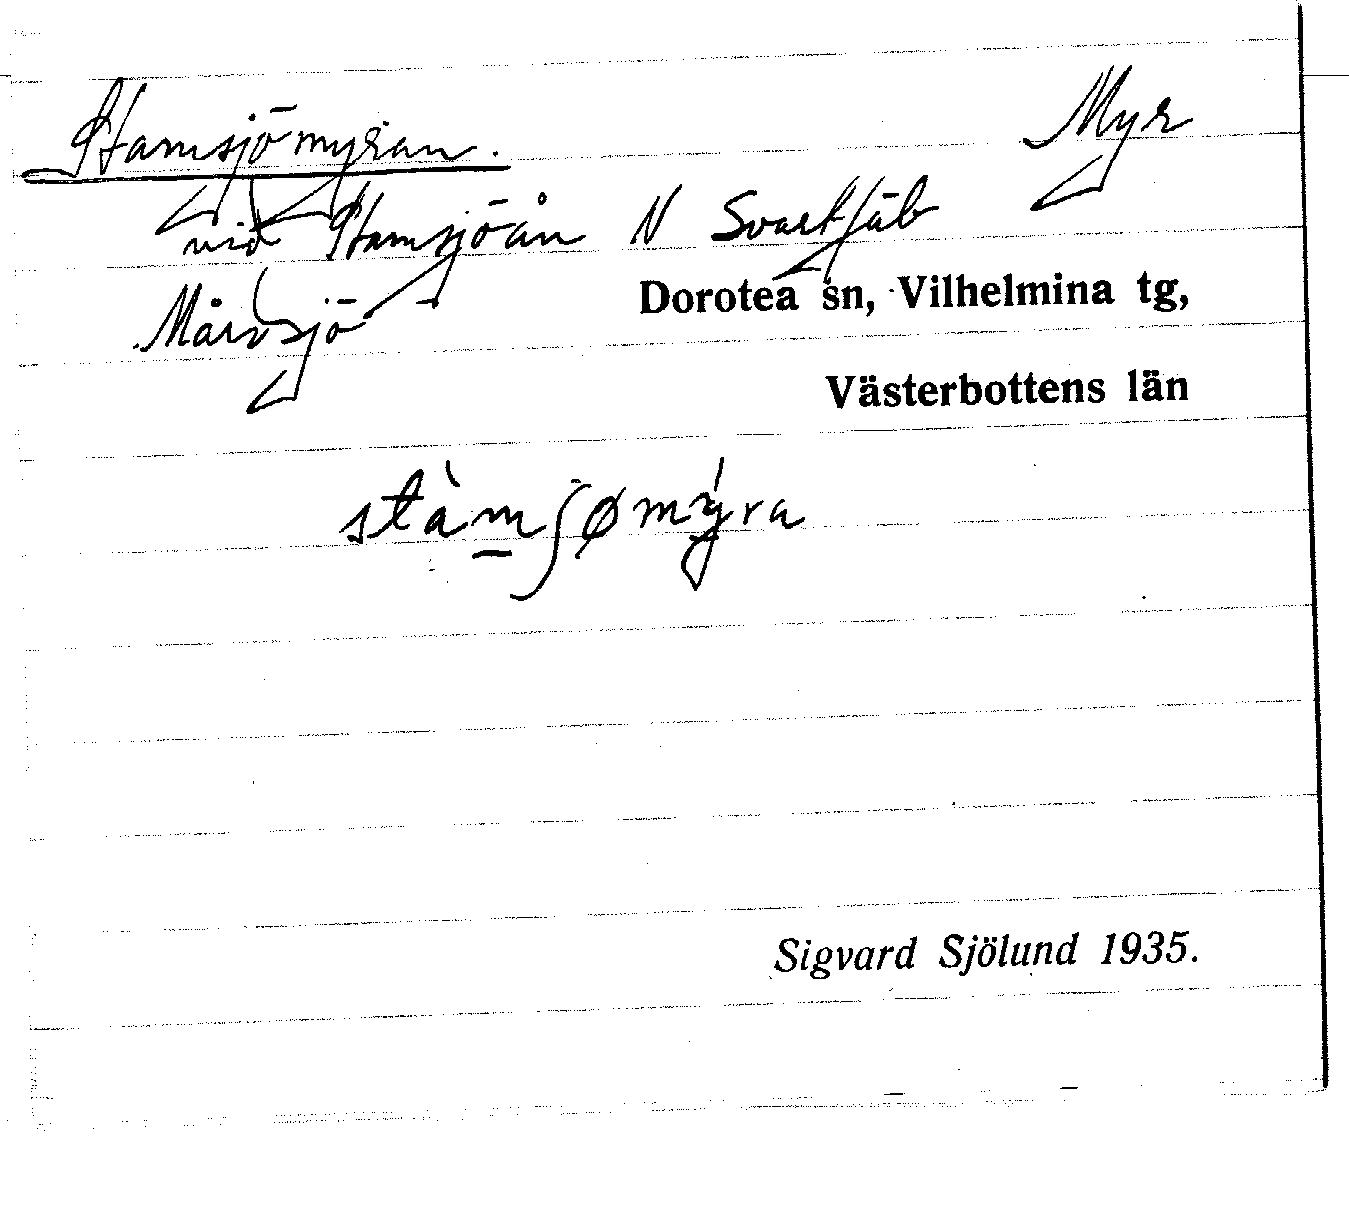 Stamsjömyran. Myr
vid Stamsjöån N Svartjäl
Dorotea sn, Vilhelmina tg,
Mårdsjö
Västerbottens län
stàm̲ʃømýra
Sigvard Sjölund 1935.